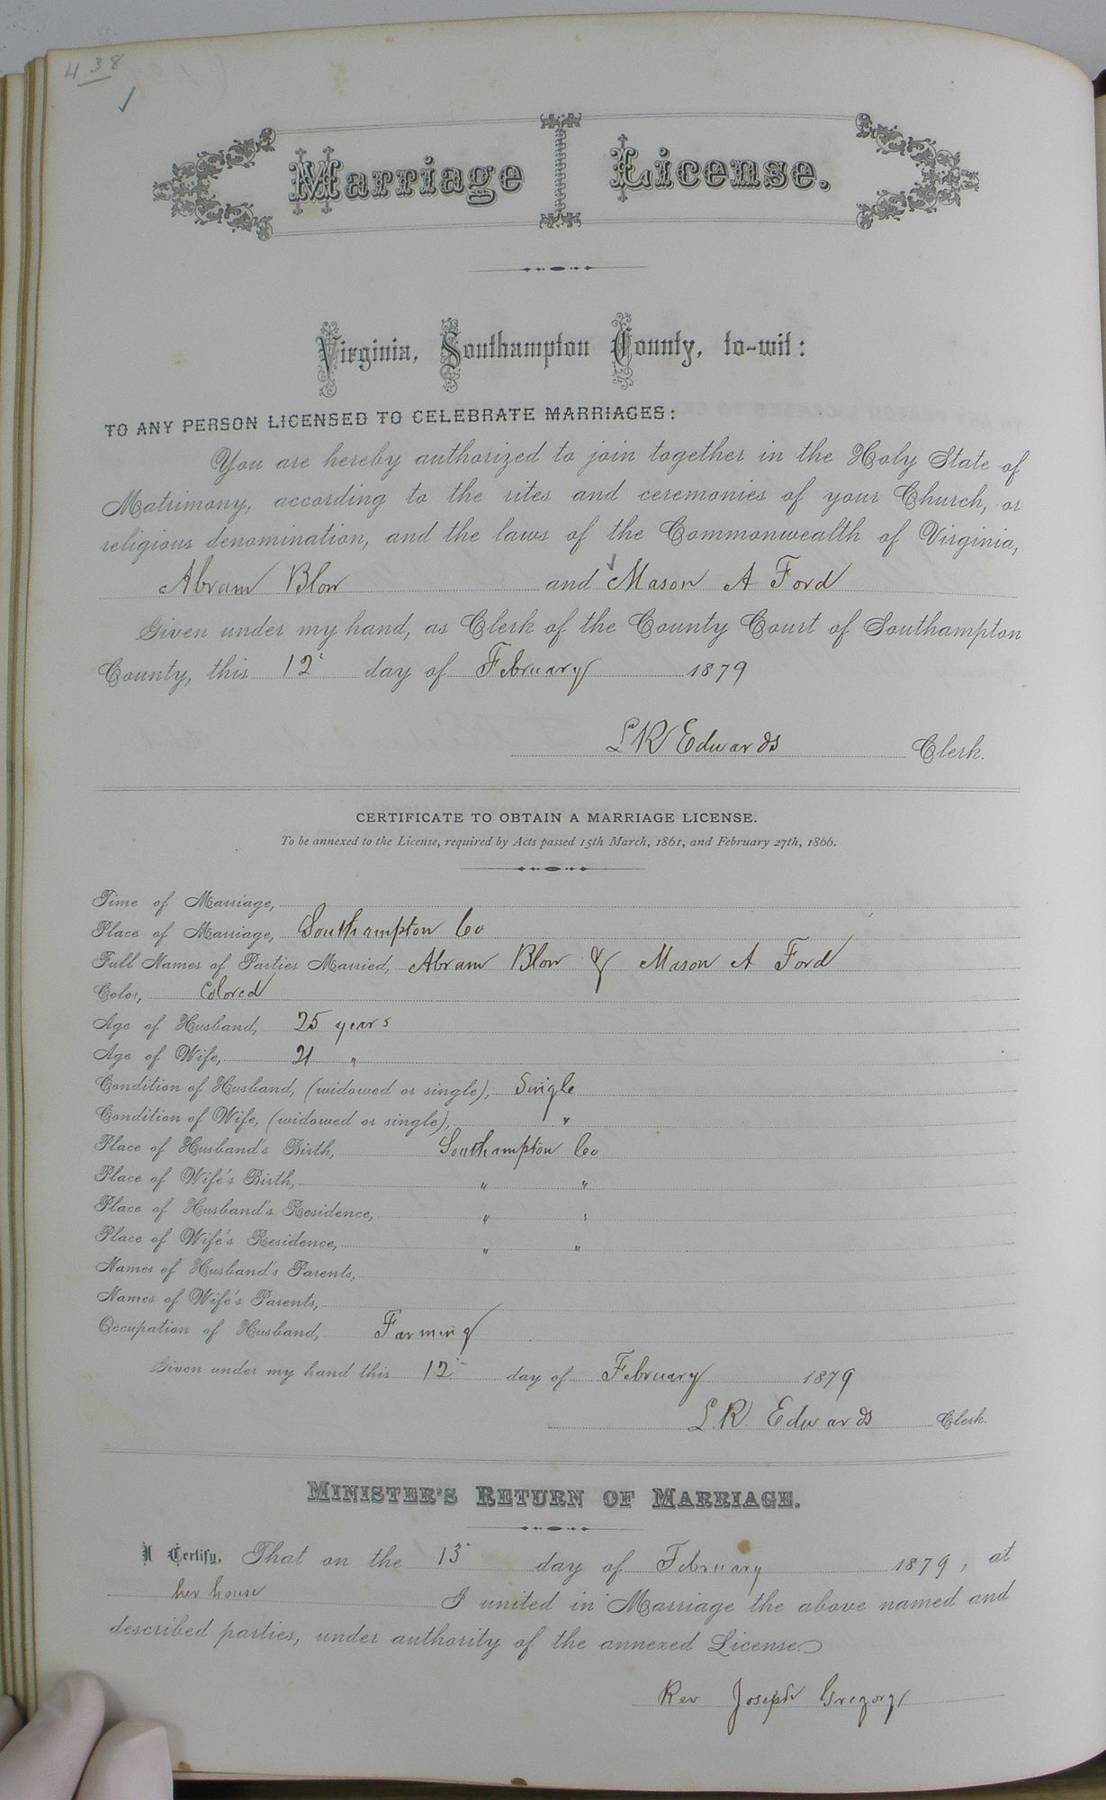 438
Marriage License.
Virginia, Southampton County, to-wit:
TO ANY PERSON LICENSED TO CELEBRATE MARRIAGES:
You are hereby authorized to join together in the Holy State of
Matrimony, according to the rites and ceremonies of your Church, or
religious denomination, and the laws of the Commonwealth of Virginia,
Abram Blow and Mason A Ford
Given under my hand, as Clerk of the County Court of Southampton
County, this 12 day of February 1879
L R Edwards Clerk.
CERTIFICATE TO OBTAIN A MARRIAGE LICENSE.
To be annexed to the License, required by Acts passed 15th March, 1861, and February 27th, 1866.
Time of Marriage,
Place of Marriage, Southampton Co
Full Names of Parties Married, Abram Blow & Mason A Ford
Color, Colored
Age of Husband, 25 years
Age of Wife, 21 "
Condition of Husband, (widowed or single), Single
Condition of Wife, (widowed or single), "
Place of Husband's Birth, Southampton Co
Place of Wife's Birth, " "
Place of Husband's Residence, " "
Place of Wife's Residence, " "
Names of Husband's Parents,
Names of Wife's Parents,
Occupation of Husband, Farming
Given under my hand this 12 day of February 1879
L R Edwards Clerk.
MINISTER'S RETURN OF MARRIAGE.
I Certify, That on the 13 day of February 1879, at
her house I united in Marriage the above named and
described parties, under authority of the annexed License.
Rev Joseph Gregory